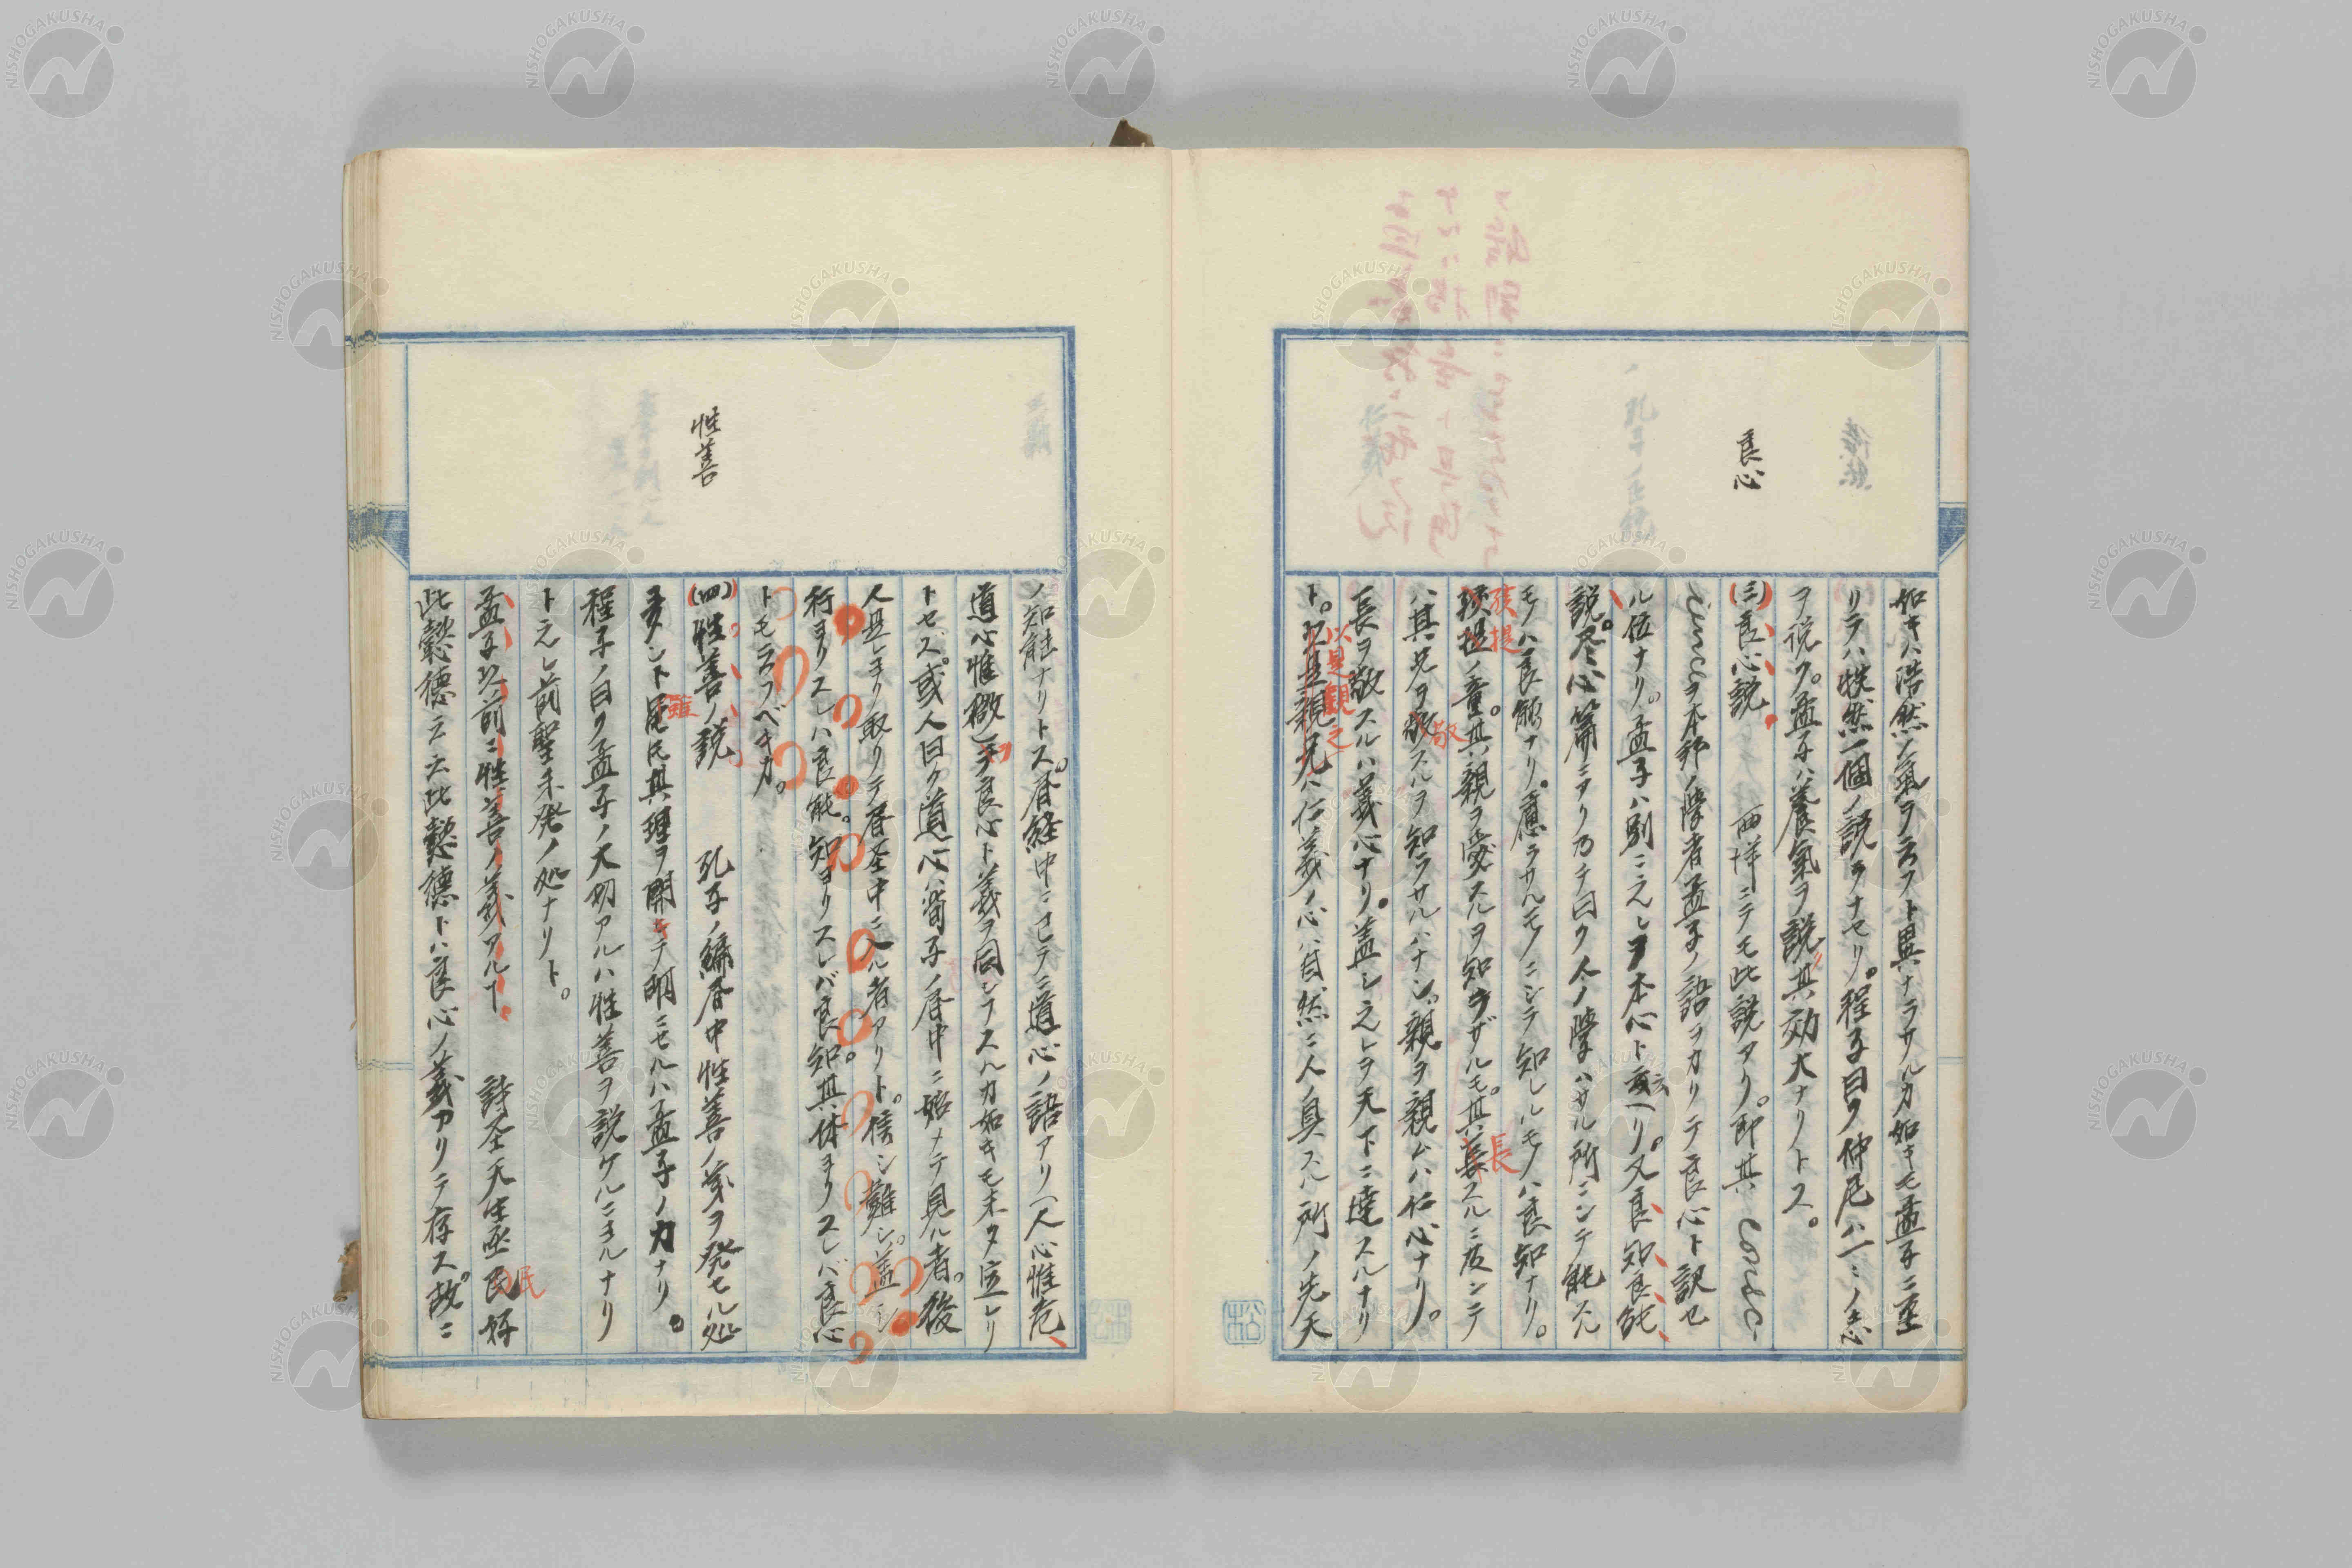 良心
如キハ浩然ノ氣ヲ云フト異ナラサルカ如キモ孟子ニ至
リテハ軼然一個ノ説ヲナセリ。程子曰ク仲尼ハ一ニノ志
ヲ説ク。孟子ハ養氣ヲ説其効大ナリトス。
(三)良心説 西洋ニテモ此説アリ。即其
ヲ本邦ノ學者孟子ノ語ヲカリテ良心ト訳セ
ル位ナリ。孟子ハ別ニ之レヲ本心ト云ヘリ。又良知良能
説。尽心篇ニアリ乃チ曰ク人ノ學ハサル所ニシテ能スル
モノハ良能ナリ。慮ラサルモノニシテ知レルモノハ良知ナリ。
孩提ノ童。其親ヲ愛スルヲ知ラザルモ。其長スルニ及ンテ
ハ其兄ヲ敬スルヲ知ラサルハナシ。親ヲ親ムハ仁心ナリ。
長ヲ敬スルハ義心ナリ。盖シ之レヲ天下ニ達スルナリ
ト。以是観之ハ仁義ノ心ハ自然ニ人ノ具スル所ノ先天
性善
ノ知能ナリトス。書経中ニ已テニ道心ノ語アリ(人心惟危、
道心惟微)良心ト義ヲ同シフスルカ如キモ未タ定レリ
トセズ。或人曰ク道心ハ荀子ノ書中ニ始メテ見ル者。後
人是レヨリ取リテ書圣中ニ入ル者アリト。信シ難シ。盖シ
行ヨリスレハ良能。知ヨリスレバ良知。其体ヨリスレバ良心
トモ云フベキカ。
(四)性善ノ説 孔子ノ編書中性善ノ義ヲ発セル処
多シト雖氏其理ヲ開キテ明ニセルハ孟子ノ力ナリ。
程子ノ曰ク孟子ノ大功アルハ性善ヲ説ケルニヨルナリ
ト之レ前聖未発ノ処ナリト。
孟子以前ニ性善ノ義アルヿ 詩圣天生烝民好
此懿德云云此懿德トハ良心ノ義アリテ存ス。故ニ
孩提
敬
長
以是観之
雖
民